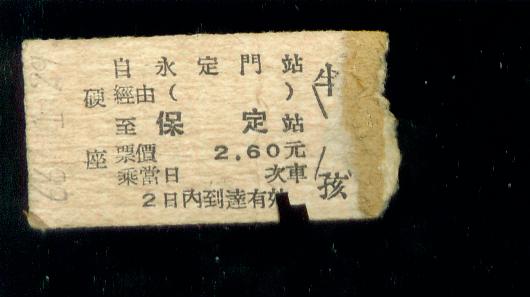 自永定門站
硬經由( )
至保定站
座票價2.60元
乘當日 次車
2日內到達有效
半
孩